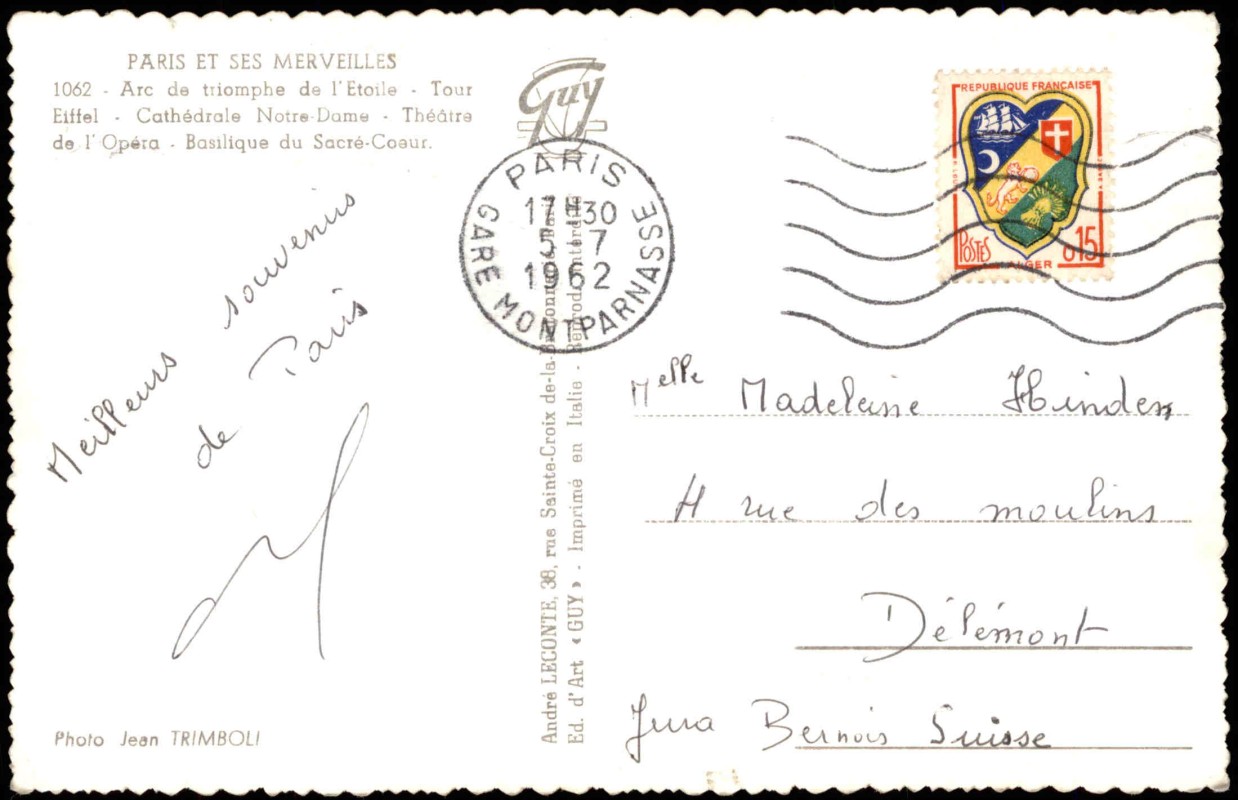 PARIS ET SES MERVEILLES
1062 - Arc de triomphe de l'Etoile - Tour
Eiffel - Cathédrale Notre-Dame - Théâtre
de l'Opéra - Basilique du Sacré-Coeur.
Guy
PARIS
17H30
5-7
1962
GARE MONTPARNASSE
REPUBLIQUE FRANÇAISE
POSTES
ALGER
0.15
Meilleurs souvenirs
de Paris
André LECONTE, 38, rue Sainte-Croix de-la-Bretonnerie, Paris
Ed. d'Art « GUY » - Imprimé en Italie - Reprod. interdite
Melle Madeleine
rue des moulins
Délémont
Jura Bernois Suisse
Photo Jean TRIMBOLI